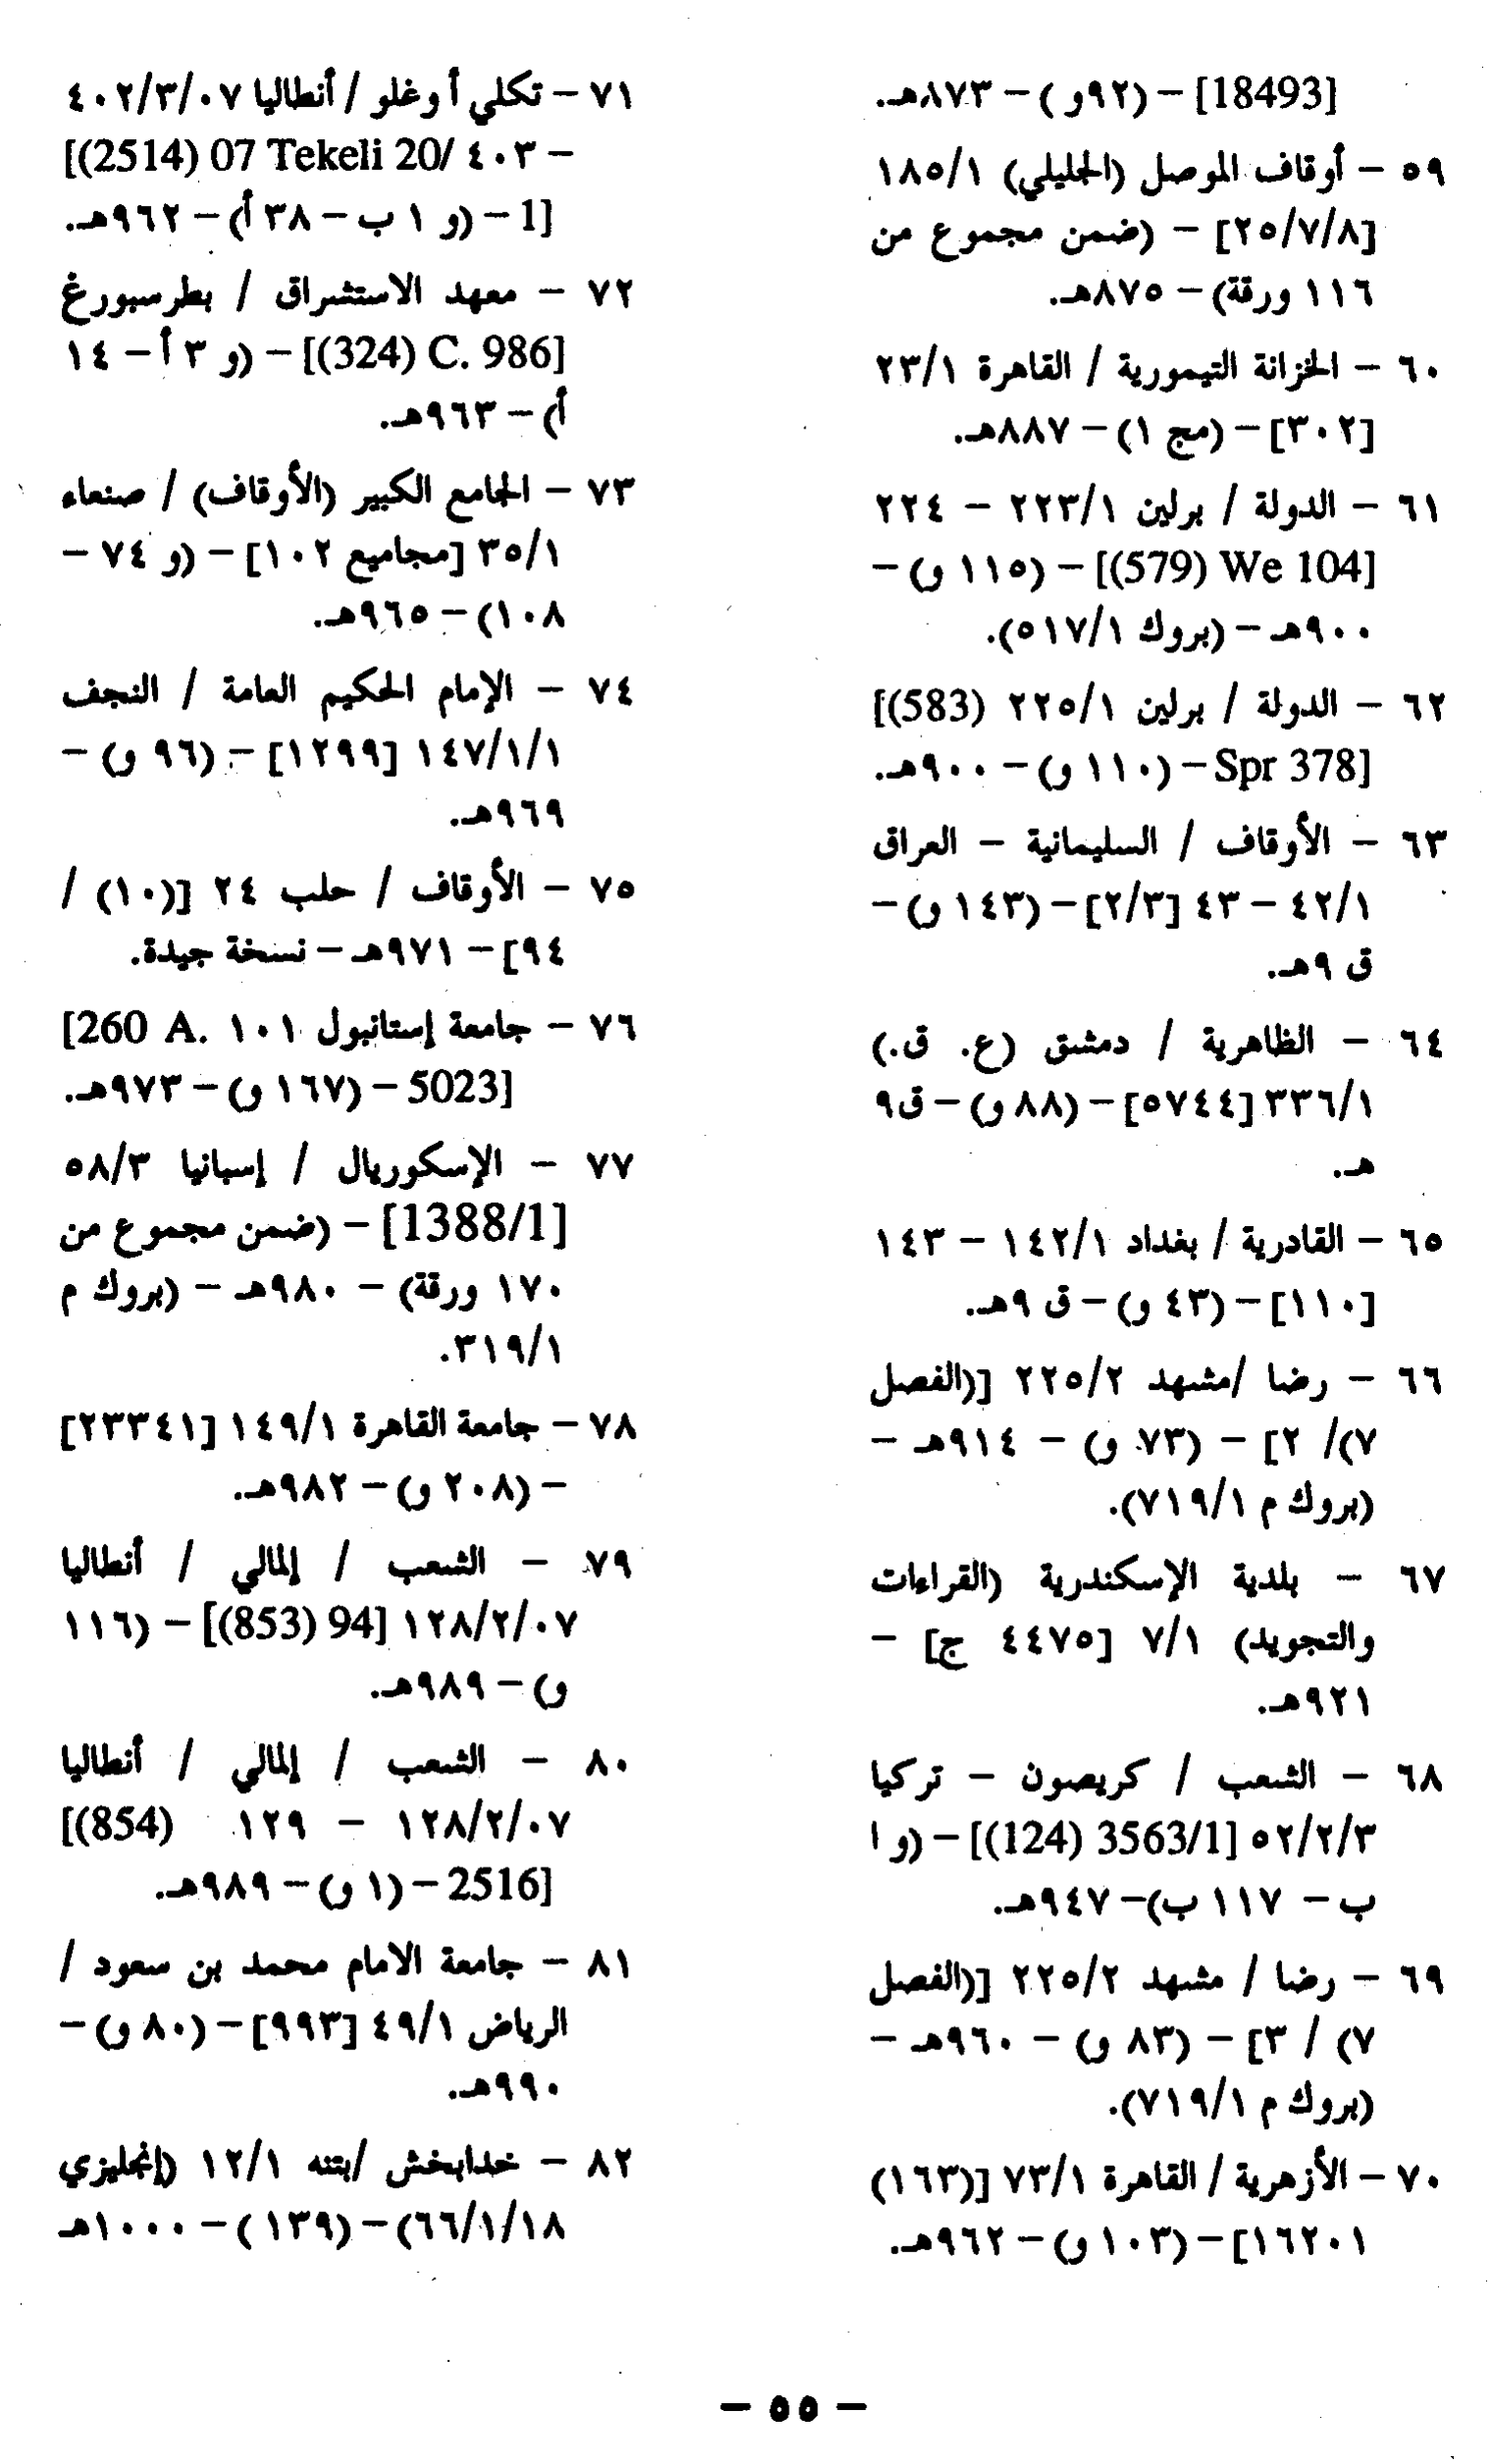 [18493] – (٩٢و) – ٨٧٣هـ.
٥٩ – أوقاف الموصل (الجليلي) ١٨٥/١
[٢٥/٧/٨] – (ضمن مجموع من
١١٦ ورقة) – ٨٧٥هـ.
٦٠ – الخزانة التيمورية / القاهرة ٢٣/١
[٣٠٢] – (مج ١) – ٨٨٧هـ.
٦١ – الدولة / برلين ٢٢٣/١ – ٢٢٤
[(579) We 104] – (١١٥ و) –
٩٠٠هـ – (بروك ٥١٧/١).
٦٢ – الدولة / برلين ٢٢٥/١ [(583)
Spr 378] – (١١٠ و) – ٩٠٠هـ.
٦٣ – الأوقاف / السليمانية – العراق
٤٢/١ – ٤٣ [٢/٣] – (١٤٣ و) –
ق ٩هـ.
٦٤ – الظاهرية / دمشق (ع. ق.)
٣٣٦/١ [٥٧٤٤] – (٨٨ و) – ق٩
هـ.
٦٥ – القادرية / بغداد ١٤٢/١ – ١٤٣
[١١٠] – (٤٣ و) – ق ٩هـ.
٦٦ – رضا /مشهد ٢٢٥/٢ [(الفصل
٧)/ ٢] – (٧٣ و) – ٩١٤هـ –
(بروك م ٧١٩/١).
٦٧ – بلدية الإسكندرية (القراءات
والتجويد) ٧/١ [٤٤٧٥ ج] –
٩٢١هـ.
٦٨ – الشعب / كريصون – تركيا
٥٢/٢/٣ [(124) 3563/1] – (و ١
ب – ١١٧ ب) – ٩٤٧هـ.
٦٩ – رضا / مشهد ٢٢٥/٢ [(الفصل
٧) / ٣] – (٨٣ و) – ٩٦٠هـ –
(بروك م ٧١٩/١).
٧٠ – الأزهرية / القاهرة ٧٣/١ [(١٦٣)
١٦٢٠١] – (١٠٣ و) – ٩٦٢هـ.
٧١ – تكلي أوغلو / أنطاليا ٤٠٢/٣/٠٧
– ٤٠٣ [(2514) 07 Tekeli 20/
1] – (و ١ ب – ٣٨ أ) – ٩٦٢هـ.
٧٢ – معهد الاستشراق / بطرسبورغ
[(324) C. 986] – (و ٣ أ – ١٤
أ) – ٩٦٣هـ.
٧٣ – الجامع الكبير (الأوقاف) / صنعاء
٣٥/١ [مجاميع ١٠٢] – (و ٧٤ –
١٠٨) – ٩٦٥هـ.
٧٤ – الإمام الحكيم العامة / النجف
١٤٧/١/١ [١٢٩٩] – (٩٦ و) –
٩٦٩هـ.
٧٥ – الأوقاف / حلب ٢٤ [(١٠) /
٩٤] – ٩٧١هـ – نسخة جيدة.
٧٦ – جامعة إستانبول ١٠١ [260 A.
5023] – (١٦٧ و) – ٩٧٣هـ.
٧٧ – الإسكوريال / إسبانيا ٥٨/٣
[1388/1] – (ضمن مجموع من
١٧٠ ورقة) – ٩٨٠هـ – (بروك م
٣١٩/١.
٧٨ – جامعة القاهرة ١٤٩/١ [٢٣٣٤١]
– (٢٠٨ و) – ٩٨٢هـ.
٧٩ – الشعب / إلمالي / أنطاليا
١٢٨/٢/٠٧ [(853) 94] – (١١٦
و) – ٩٨٩هـ.
٨٠ – الشعب / إلمالي / أنطاليا
١٢٨/٢/٠٧ – ١٢٩ [(854)
2516] – (١ و) – ٩٨٩هـ.
٨١ – جامعة الامام محمد بن سعود /
الرياض ٤٩/١ [٩٩٣] – (٨٠ و) –
٩٩٠هـ.
٨٢ – خدابخش /بتنه ١٢/١ (إنجليزي
٦٦/١/١٨) – (١٣٩) – ١٠٠٠هـ
– ٥٥ –